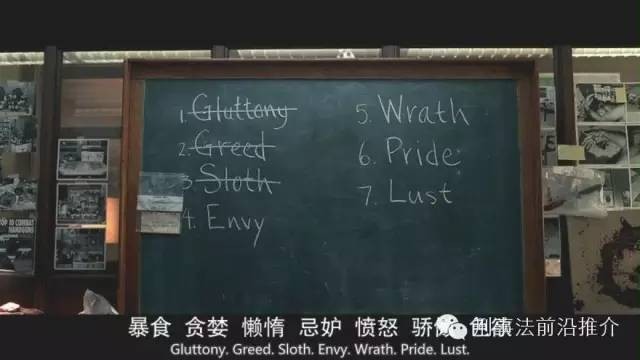 1. Gluttony
2. Greed
3. Sloth
4. Envy
5. Wrath
6. Pride
7. Lust
TOP 10 COMBAT
HANDGUNS
暴食 贪婪 懒惰 忌妒 愤怒 骄傲 色欲
刑事法前沿推介
Gluttony. Greed. Sloth. Envy. Wrath. Pride. Lust.